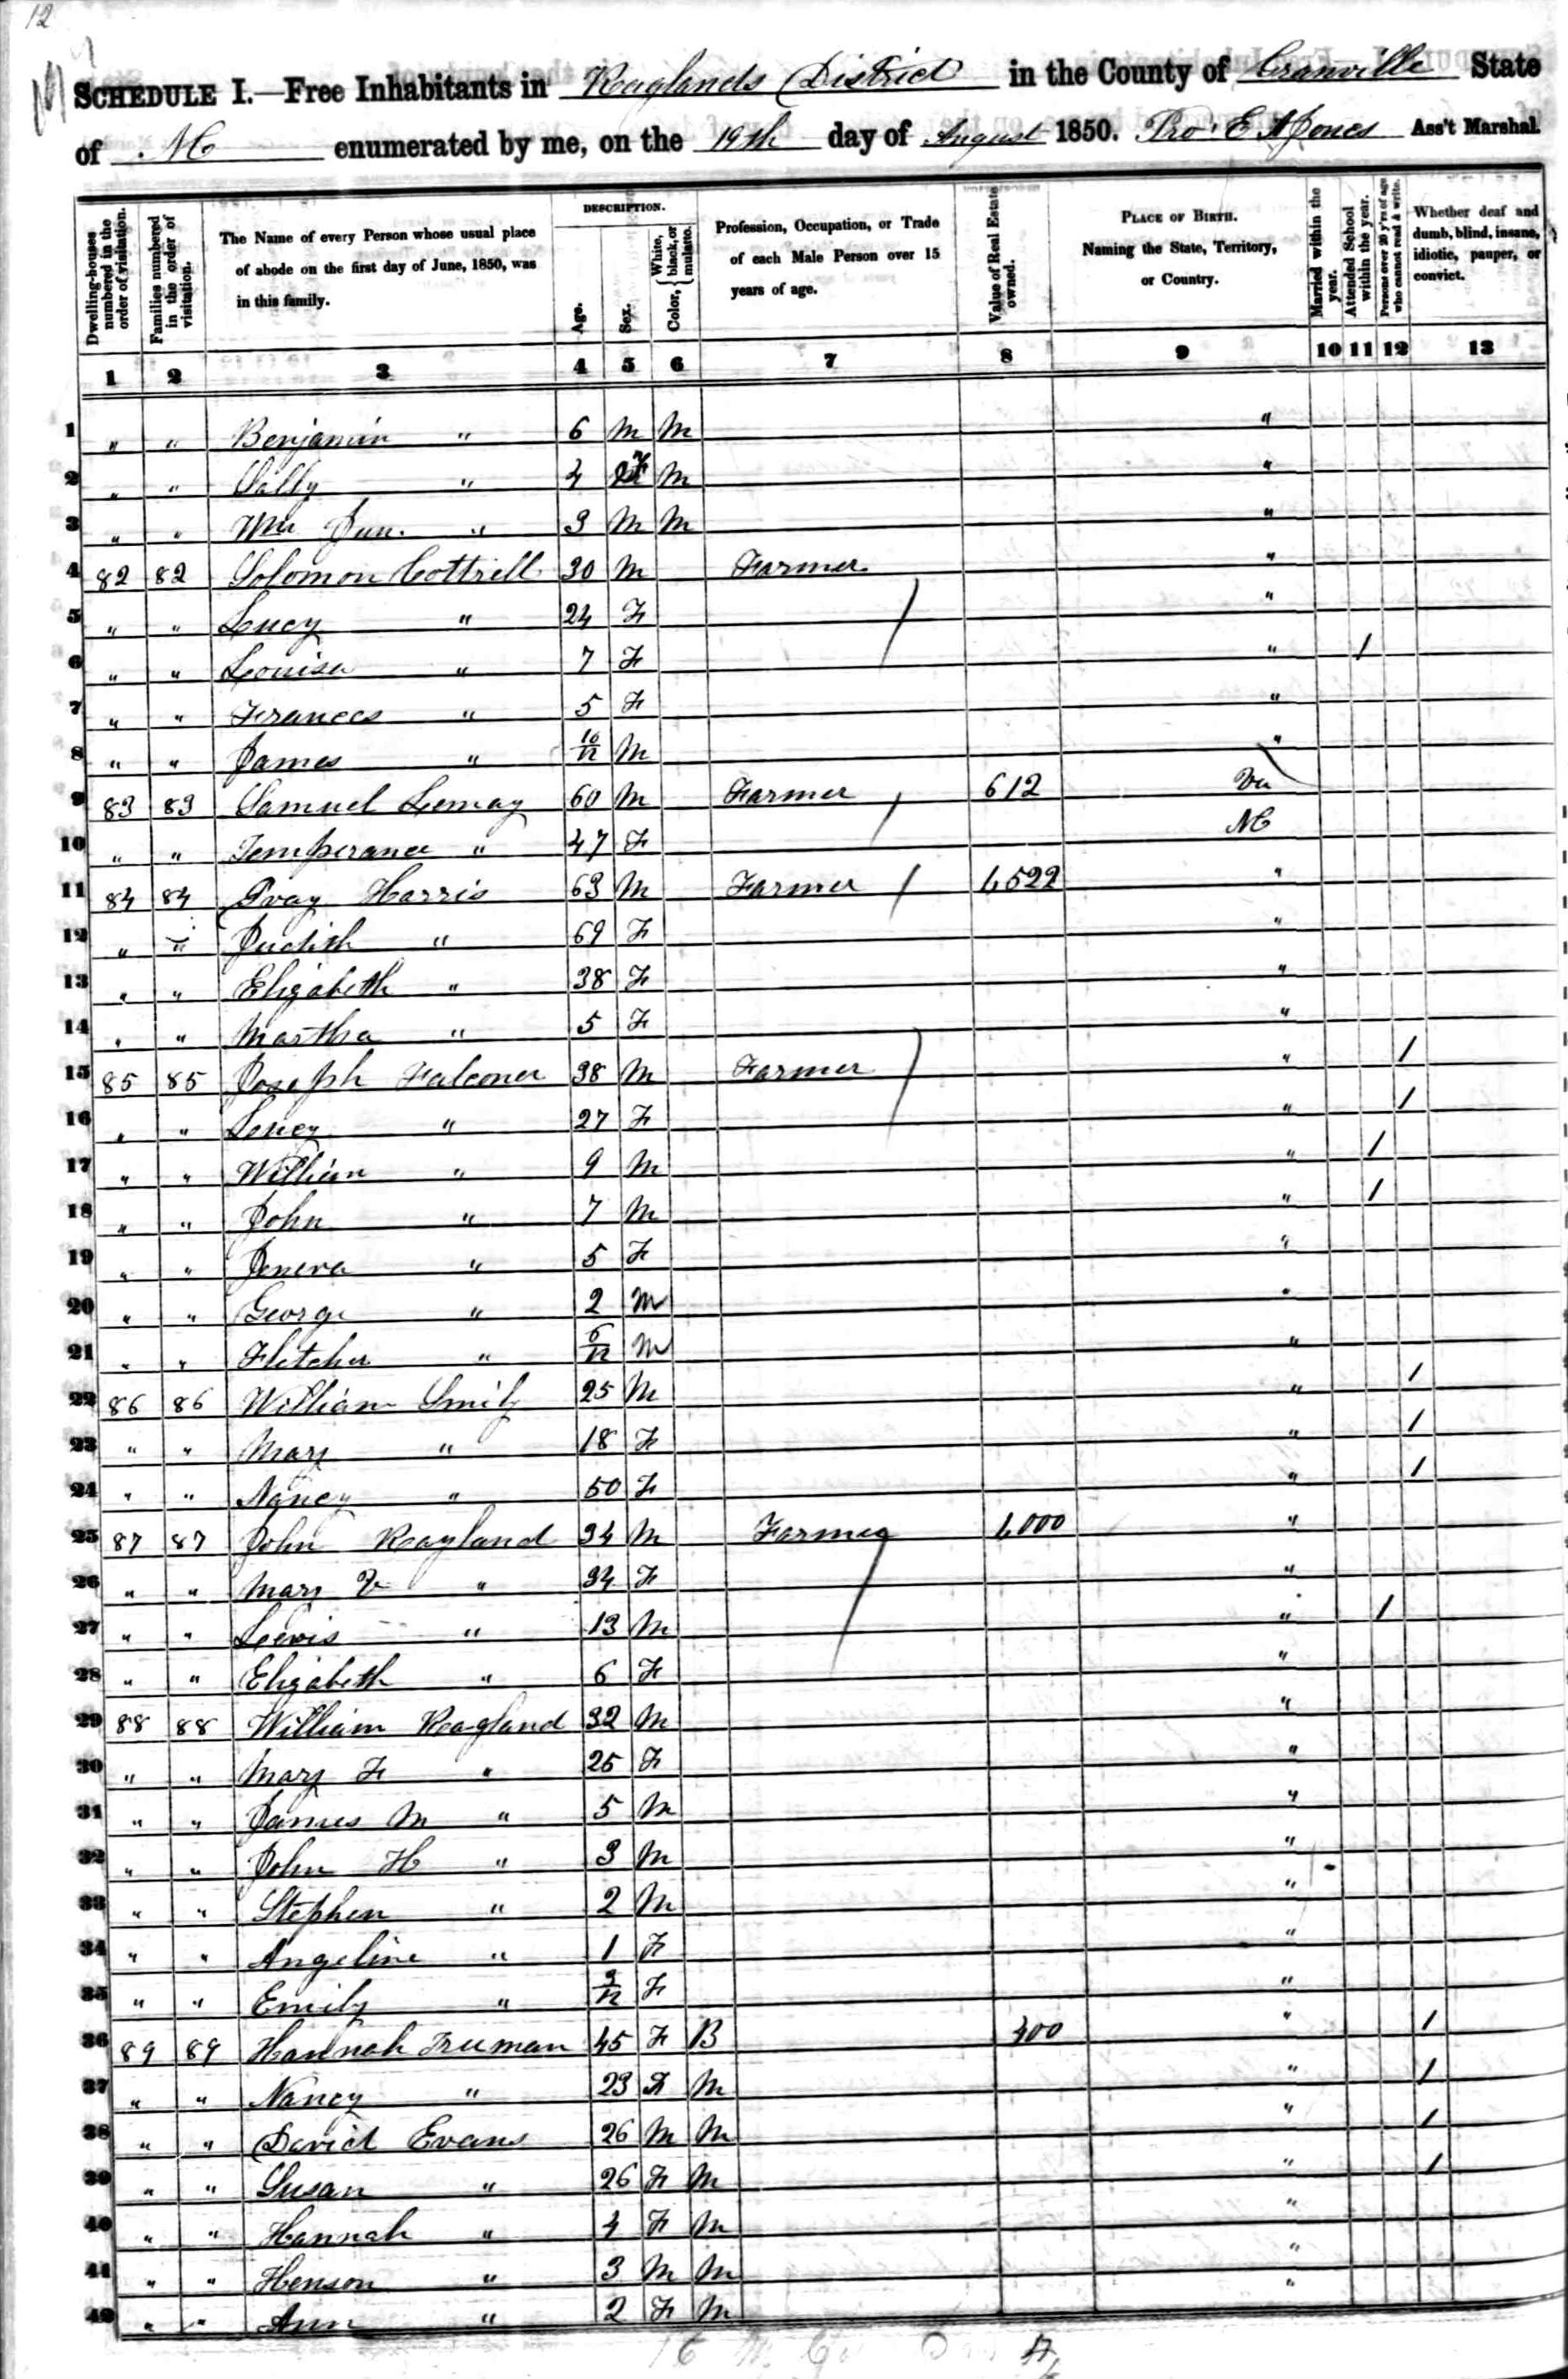 12
SCHEDULE I.—Free Inhabitants in Raglands District in the County of Granville State
of NC enumerated by me, on the 19th day of August 1850. Ass't Marshal.
Dwelling-houses numbered in the order of visitation.
Families numbered in the order of visitation.
The Name of every Person whose usual place of abode on the first day of June, 1850, was in this family.
DESCRIPTION.
Age.
Sex.
Color, { White, black, or mulatto.
Profession, Occupation, or Trade of each Male Person over 15 years of age.
Value of Real Estate owned.
PLACE OF BIRTH. Naming the State, Territory, or Country.
Married within the year.
Attended School within the year.
Persons over 20 y'rs of age who cannot read & write.
Whether deaf and dumb, blind, insane, idiotic, pauper, or convict.
1 2 3 4 5 6 7 8 9 10 11 12 13
1 " " Benjamin " 6 M M "
2 " " Sally " 4 F M "
3 " " Wm Jun. " 3 M M "
4 82 82 Solomon Cottrell 30 M Farmer "
5 " " Lucy " 24 F "
6 " " Louisa " 7 F " /
7 " " Frances " 5 F "
8 " " James " 10/12 M "
9 83 83 Samuel Lemay 60 M Farmer 612 Va
10 " " Temperance " 47 F NC
11 84 84 Harris 63 M Farmer 1,522 "
12 " " Judith " 69 F "
13 " " Elizabeth " 38 F "
14 " " Martha " 5 F "
15 85 85 Joseph Falconer 38 M Farmer " /
16 " " " 27 F " /
17 " " William " 9 M " /
18 " " John " 7 M " /
19 " " Jeneva " 5 F "
20 " " George " 2 M "
21 " " Fletcher " 6/12 M "
22 86 86 William 25 M " /
23 " " Mary " 18 F " /
24 " " Nancy " 50 F " /
25 87 87 John Ragland 34 M Farmer 1,000 "
26 " " Mary " 34 F "
27 " " Lewis " 13 M " /
28 " " Elizabeth " 6 F "
29 88 88 William Ragland 32 M "
30 " " Mary F " 25 F "
31 " " James M " 5 M "
32 " " John H " 3 M "
33 " " Stephen " 2 M "
34 " " Angeline " 1 F "
35 " " Emily " 9/12 F "
36 89 89 Hannah Freeman 45 F B 400 " /
37 " " Nancy " 23 F M " /
38 " " David Evans 26 M M " /
39 " " Susan " 26 F M " /
40 " " Hannah " 4 F M "
41 " " Henson " 3 M M "
42 " " Ann " 2 F M "